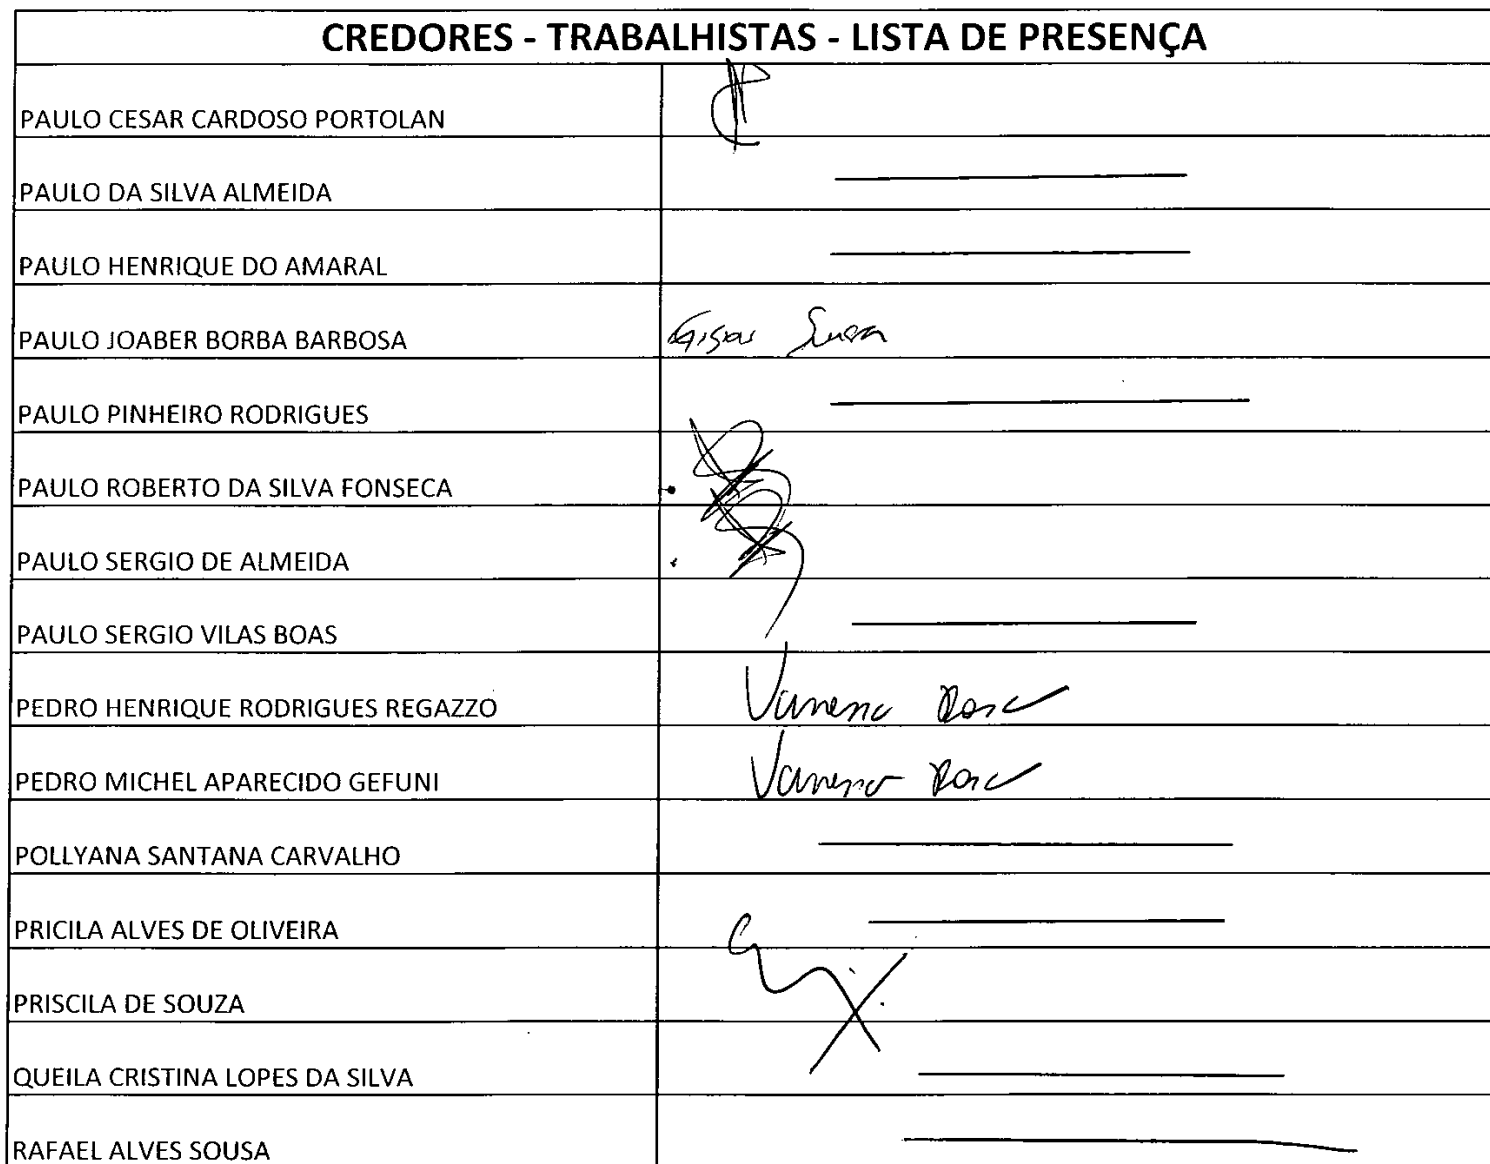 CREDORES - TRABALHISTAS - LISTA DE PRESENÇA
PAULO CESAR CARDOSO PORTOLAN
PAULO DA SILVA ALMEIDA
PAULO HENRIQUE DO AMARAL
PAULO JOABER BORBA BARBOSA
PAULO PINHEIRO RODRIGUES
PAULO ROBERTO DA SILVA FONSECA
PAULO SERGIO DE ALMEIDA
PAULO SERGIO VILAS BOAS
PEDRO HENRIQUE RODRIGUES REGAZZO Vanessa Rosa
PEDRO MICHEL APARECIDO GEFUNI Vanessa Rosa
POLLYANA SANTANA CARVALHO
PRICILA ALVES DE OLIVEIRA
PRISCILA DE SOUZA
QUEILA CRISTINA LOPES DA SILVA
RAFAEL ALVES SOUSA